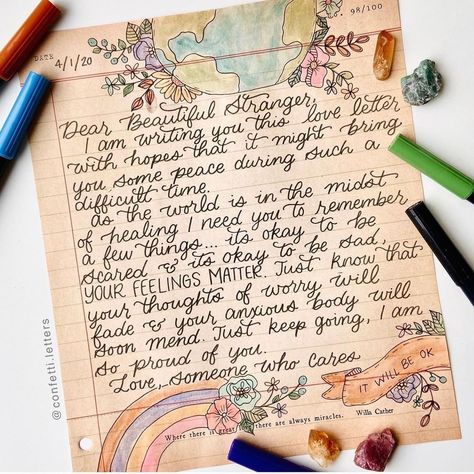 DATE 4/1/20
No. 98/100
Dear Beautiful Stranger,
I am writing you this love letter
with hopes that it might bring
you some peace during such a
difficult time.
As the world is in the midst
of healing I need you to remember
a few things... its okay to be
scared & its okay to be sad,
YOUR FEELINGS MATTER. Just know that
your thoughts of worry will
fade & your anxious body will
soon mend. Just keep going, I am
so proud of you.
Love, someone who cares
IT WILL BE OK
Where there is great there are always miracles. Willa Cather
@confetti.letters